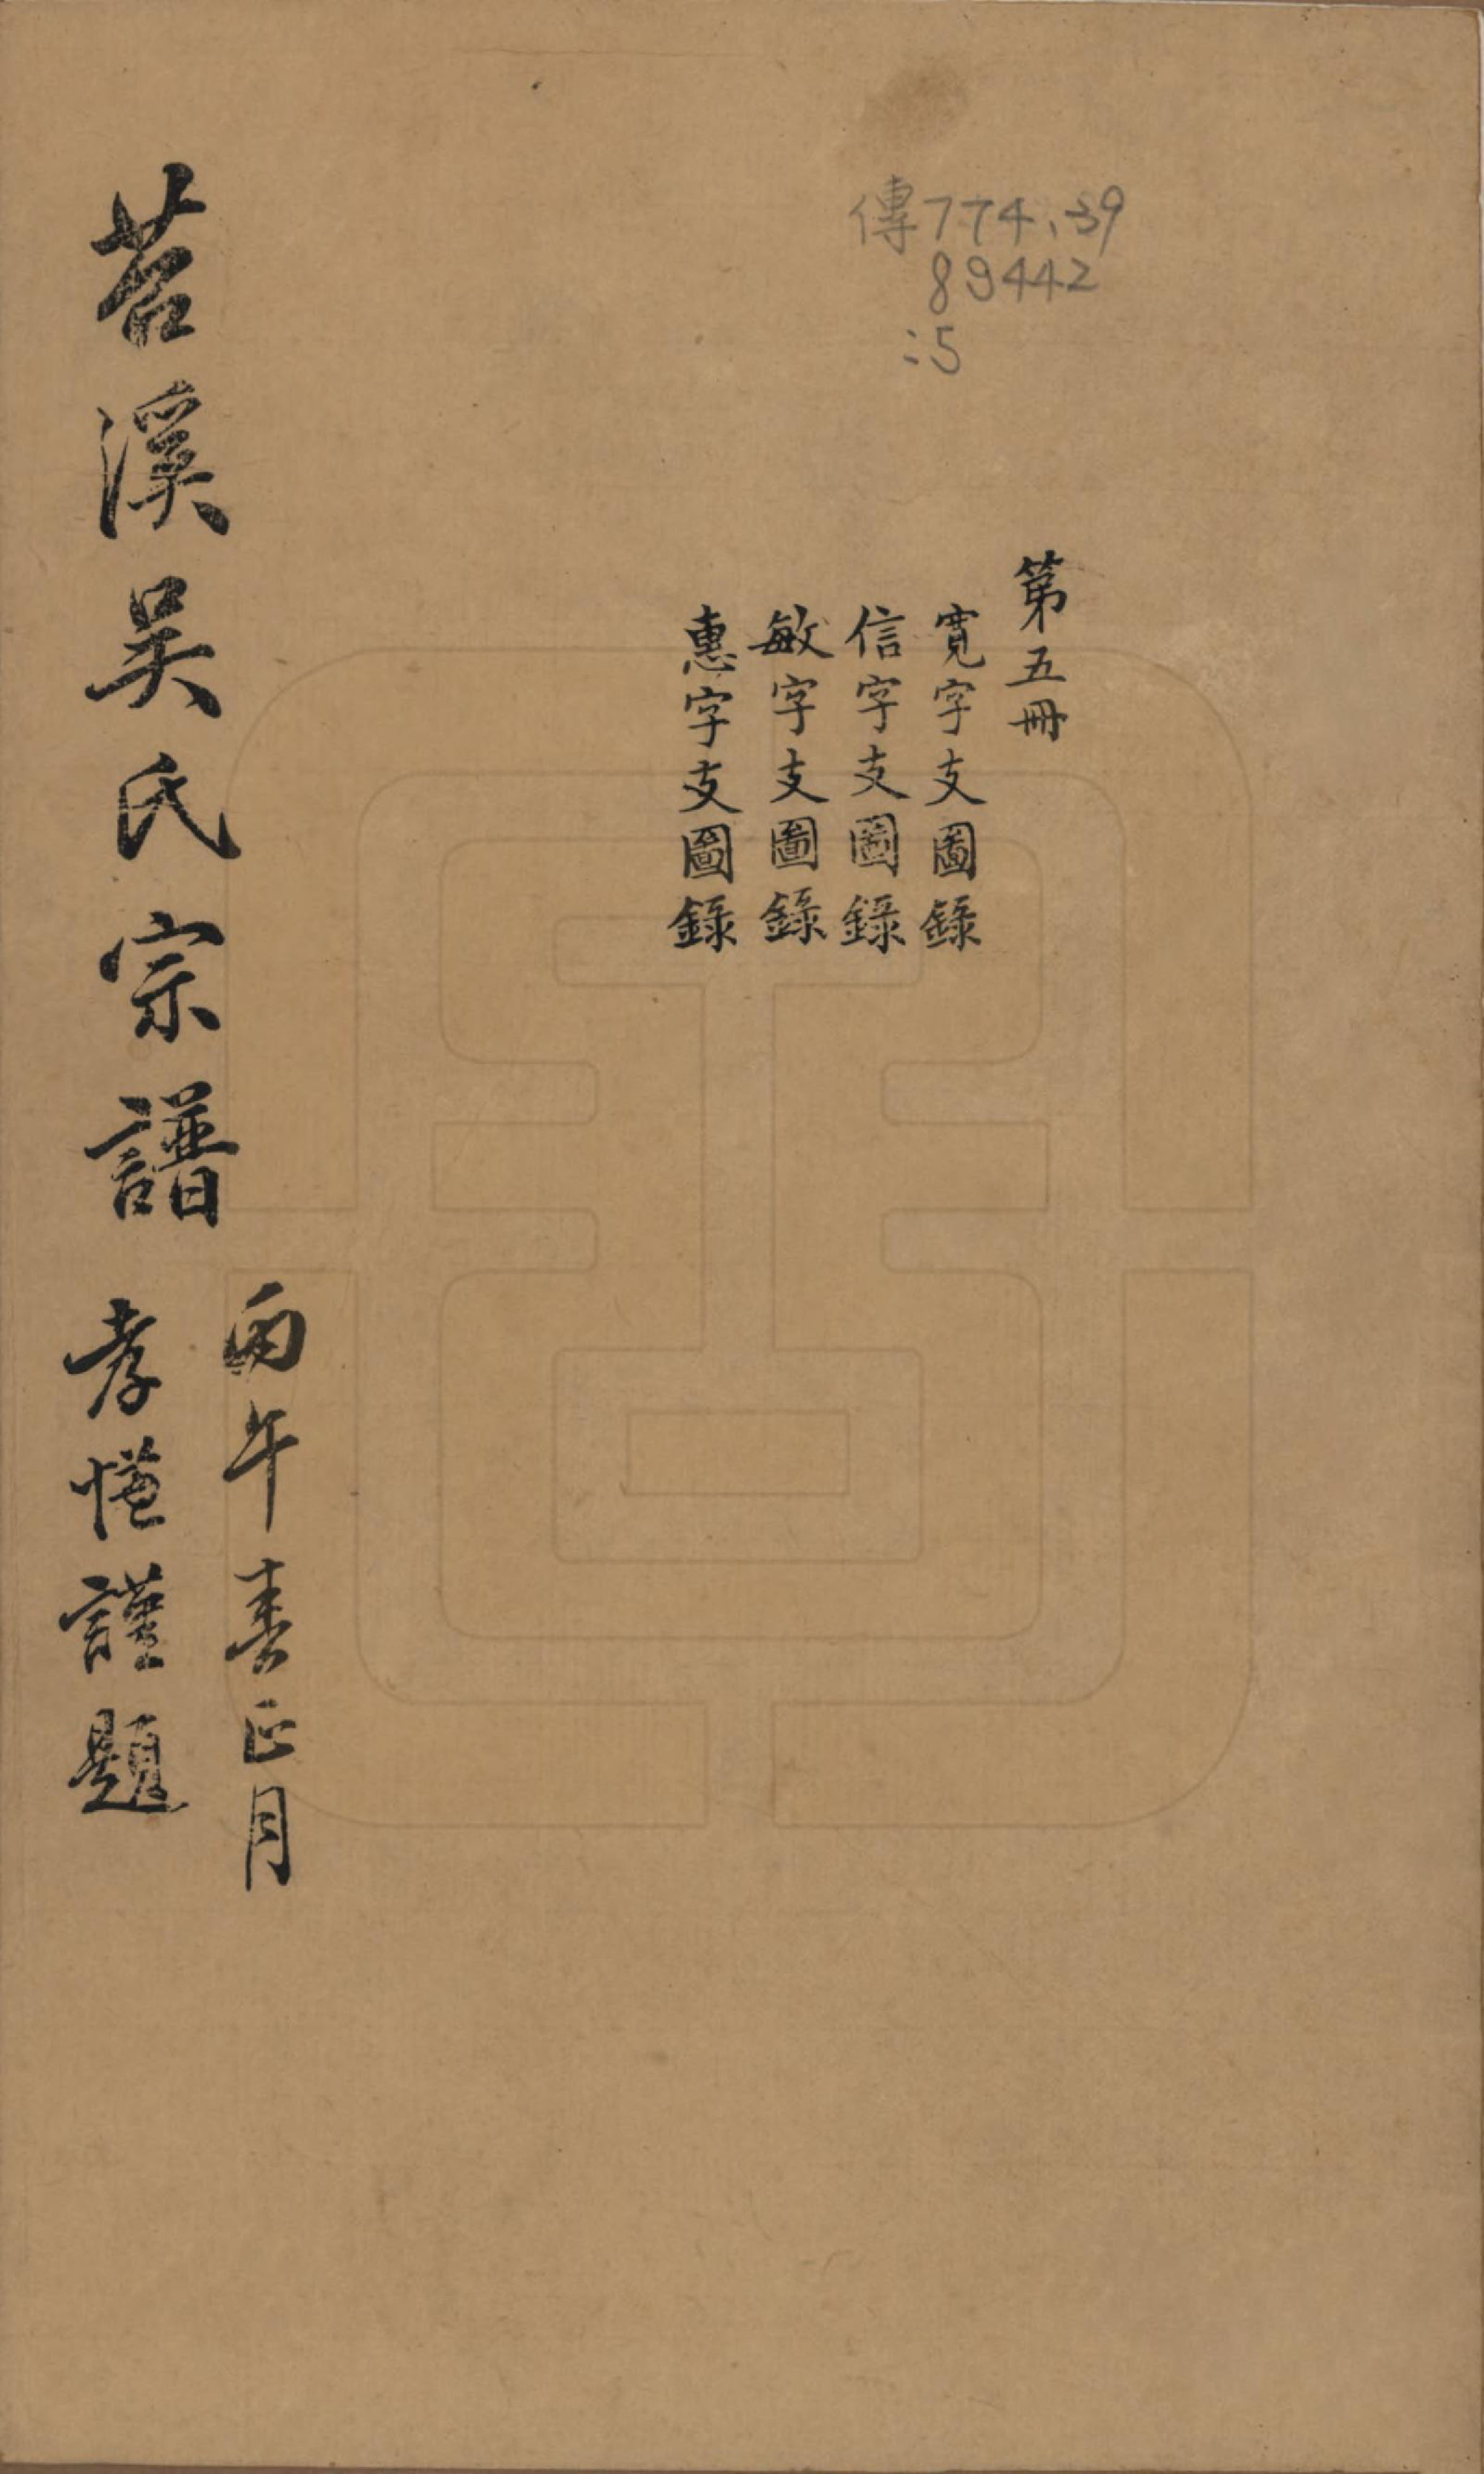 傳774.39
89442
:5
第五冊
寬字支圖錄
信字支圖錄
敏字支圖錄
惠字支圖錄
丙午春正月
苕溪吴氏宗譜
孝謹題